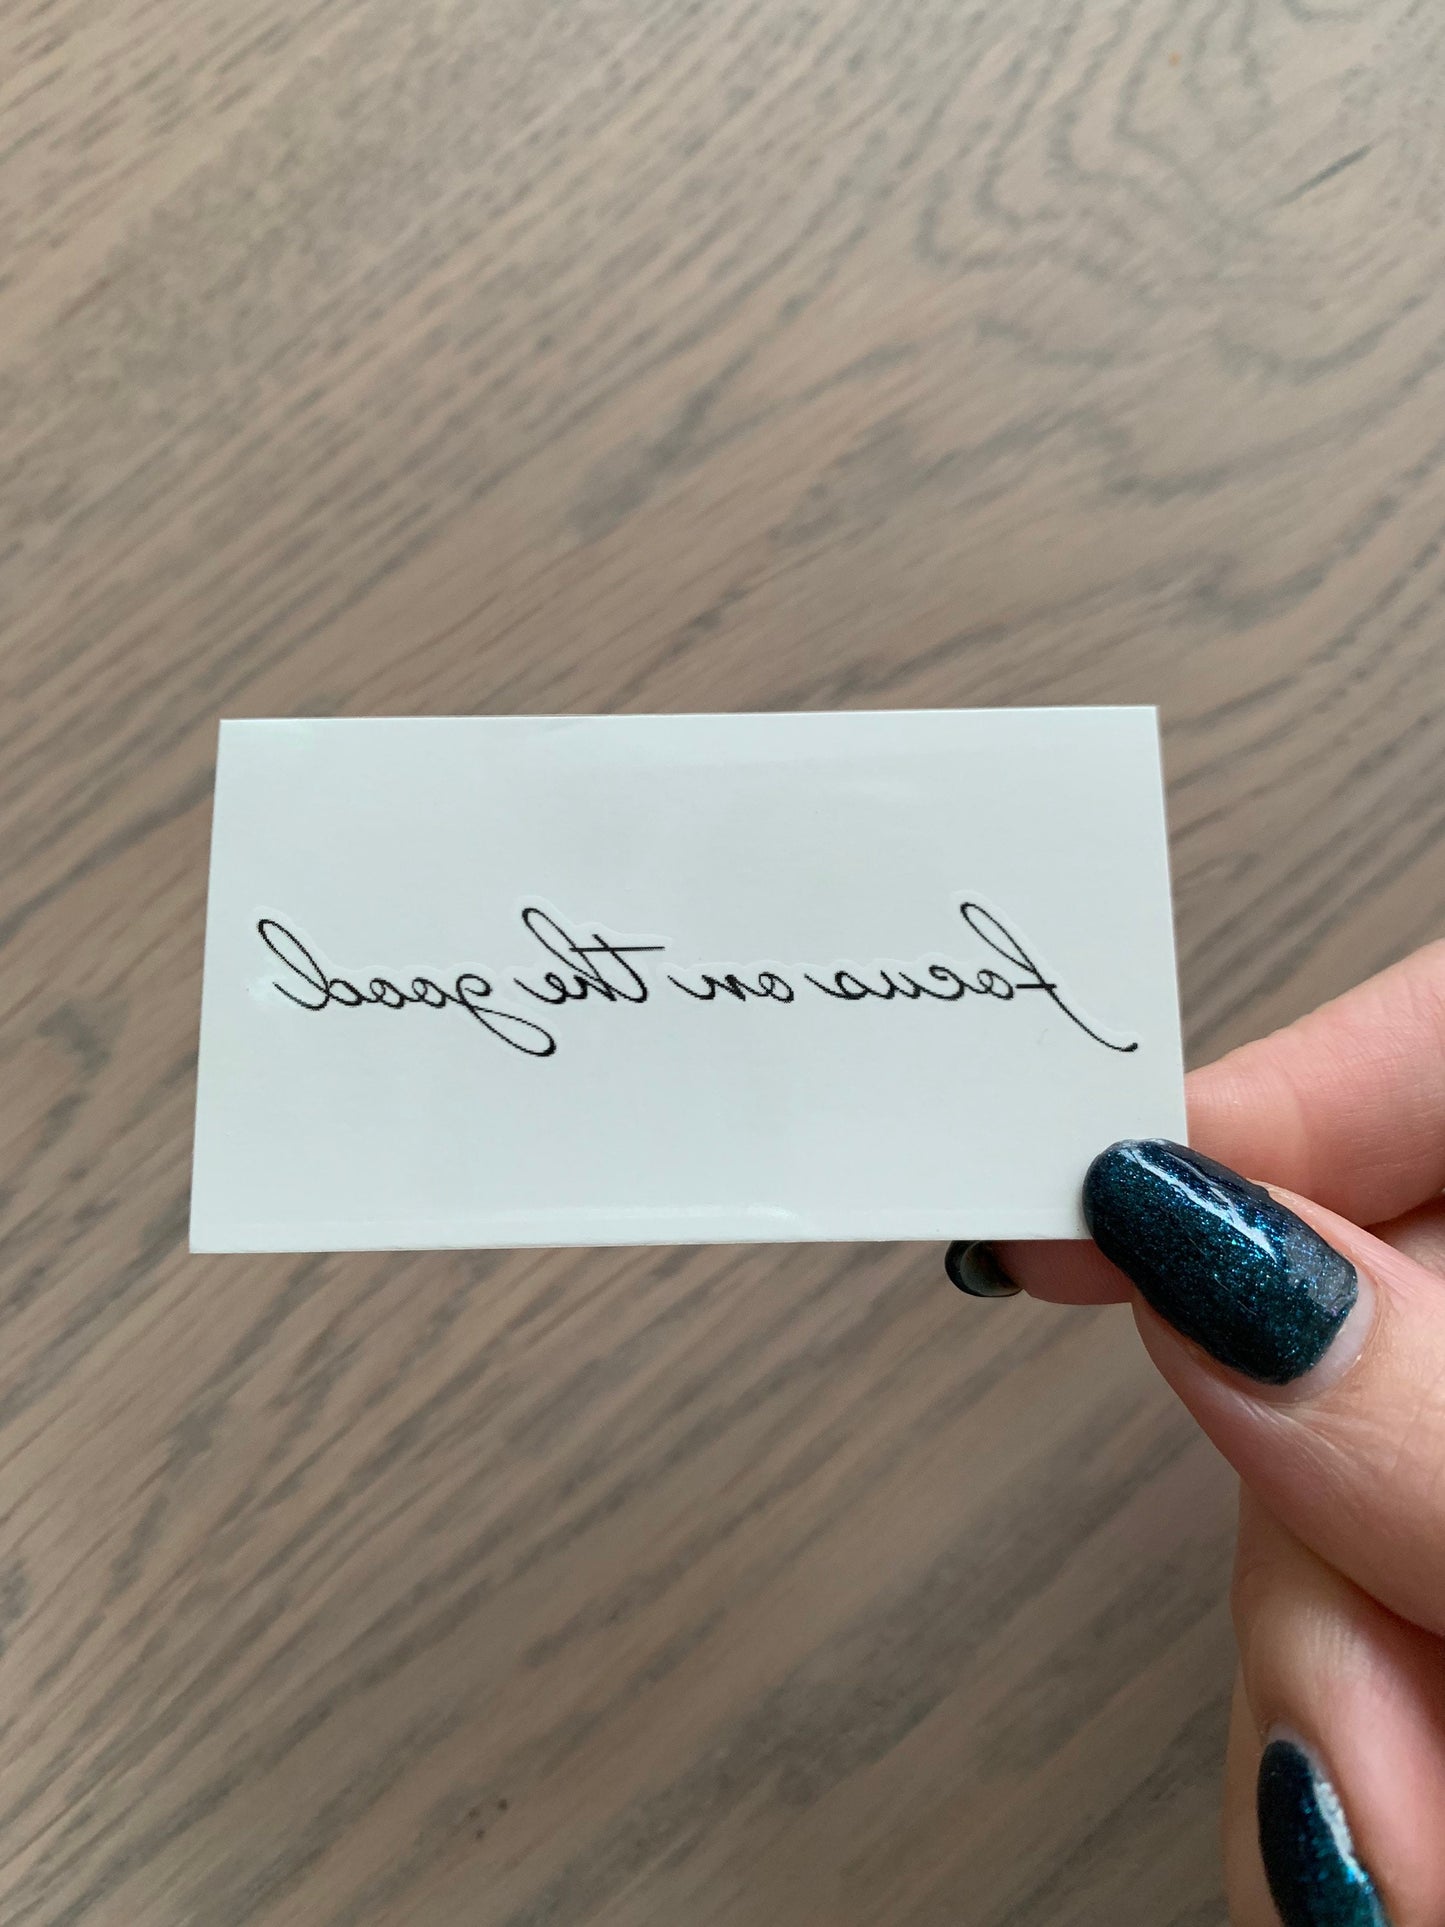 focus on the good